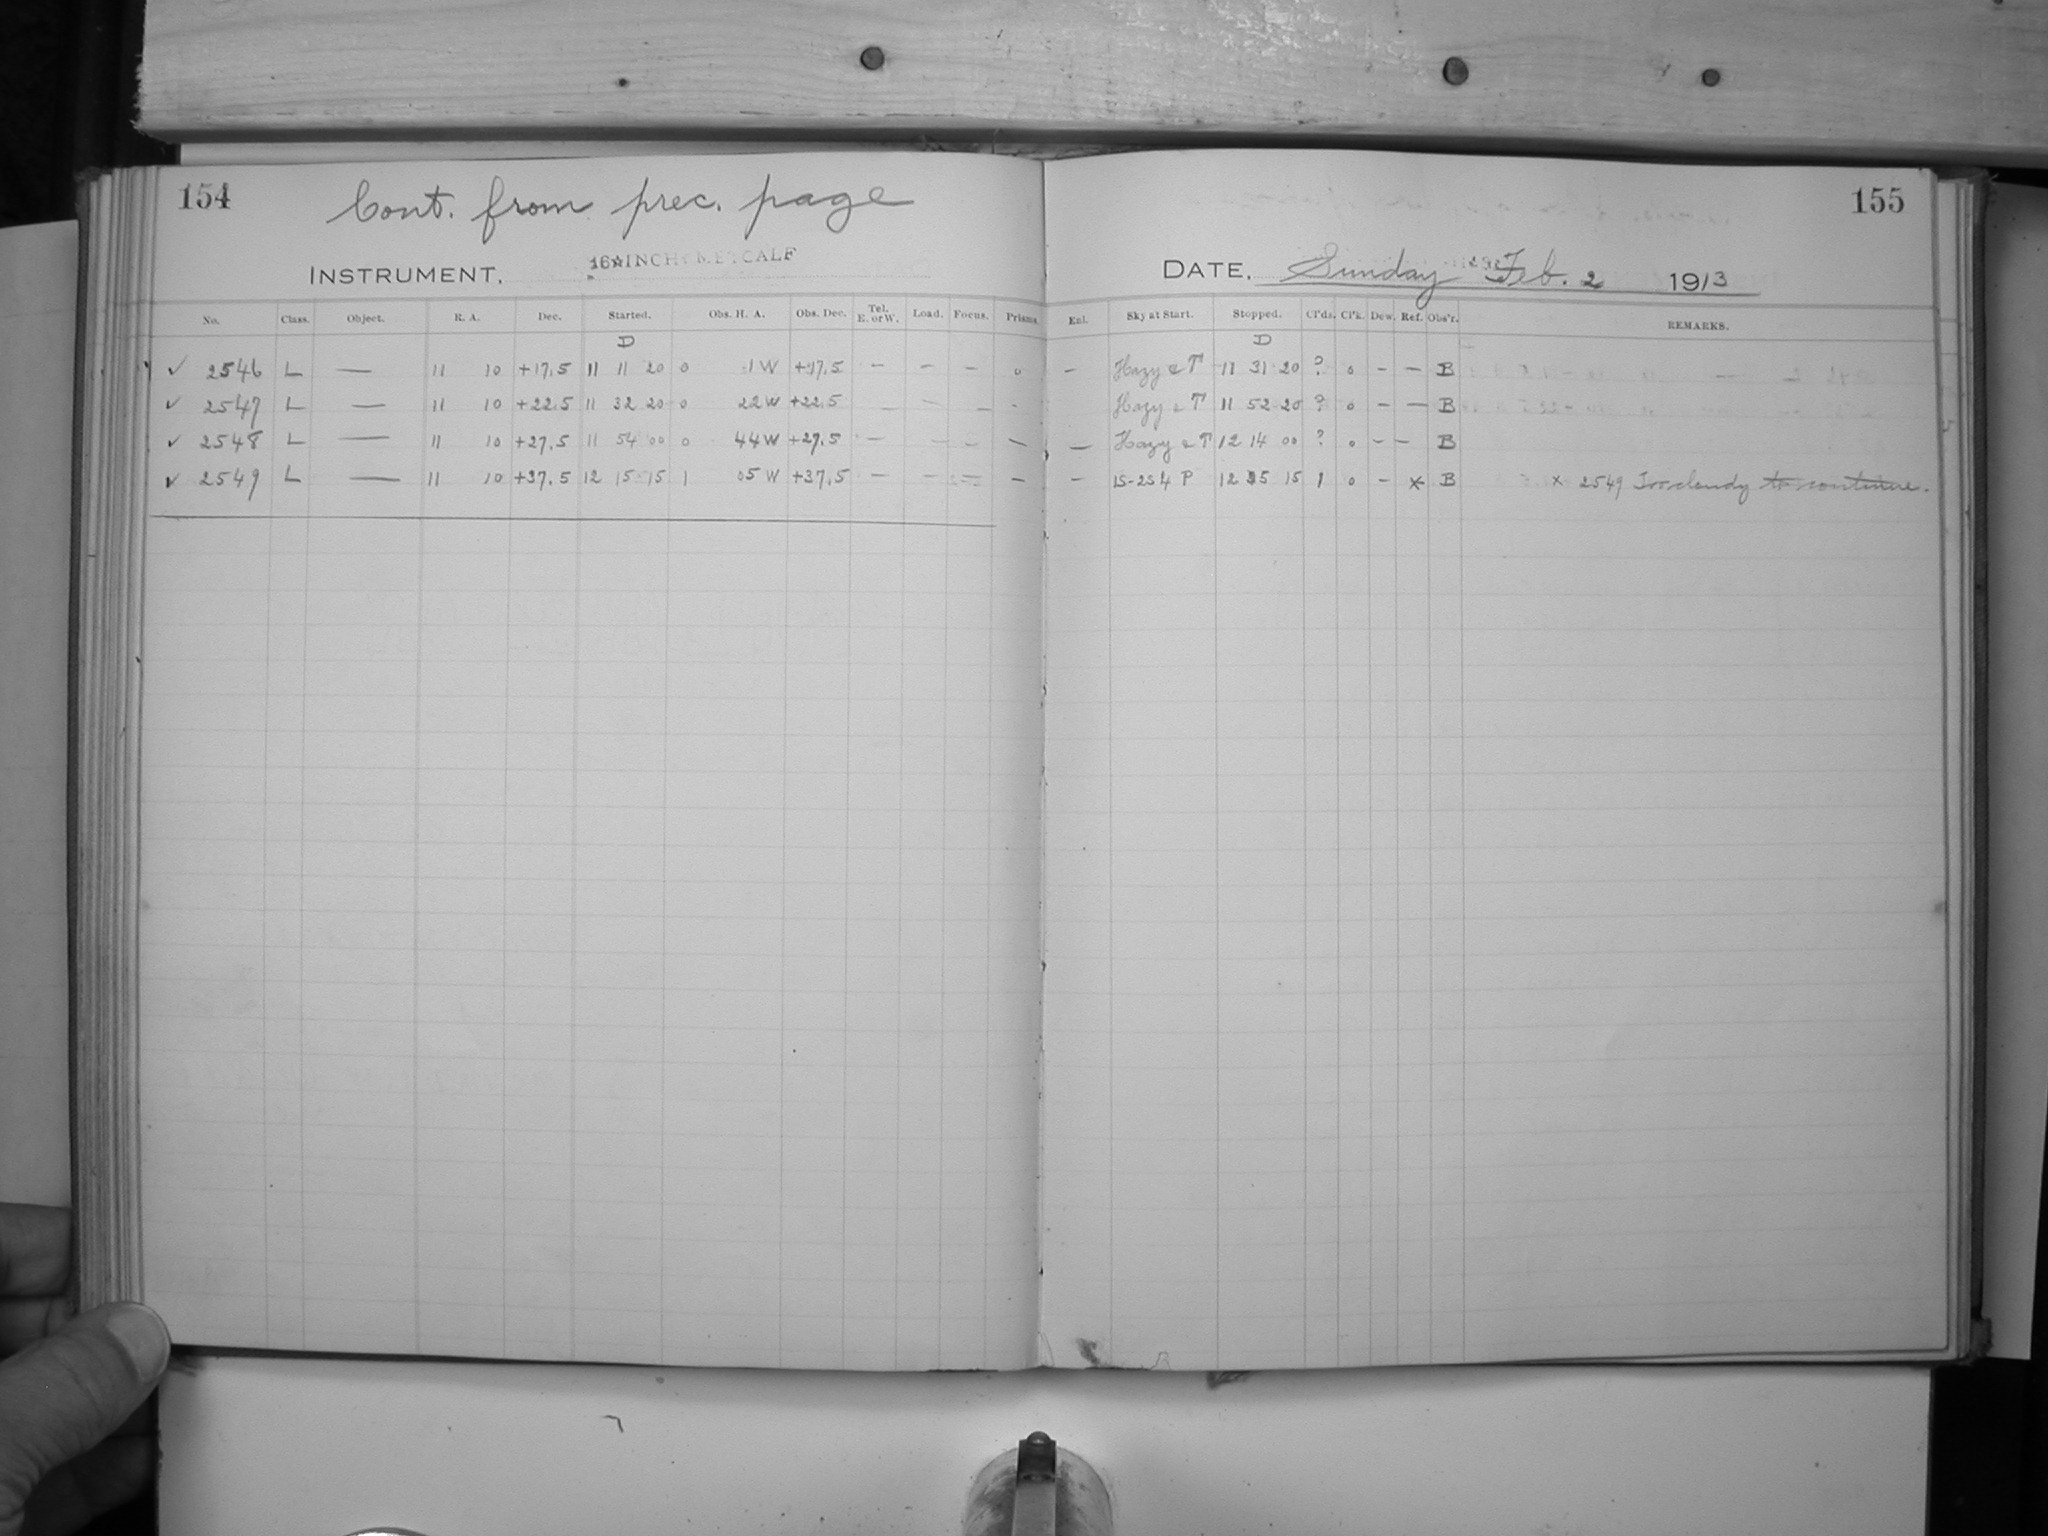 154
Cont. from prec. page
INSTRUMENT, 16 INCH METCALF
No. Class. Object. R. A. Dec. Started. Obs. H. A. Obs. Dec. Tel. E. or W. Load. Focus. Prisms.
D
✓ 2546 L — 11 10 +17.5 11 11 20 0 1 W +17.5 — — — 0
✓ 2547 L — 11 10 +22.5 11 32 20 0 22 W +22.5 — — — -
✓ 2548 L — 11 10 +27.5 11 54 00 0 44 W +27.5 — — — —
✓ 2549 L — 11 10 +37.5 12 15 15 1 05 W +37.5 — — — —
155
DATE, Sunday Feb. 2 1913
Enl. Sky at Start. Stopped. Cl'ds. Cl'k. Dew. Ref. Obs'r. REMARKS.
D
— Hazy & T 11 31 20 ? 0 — — B
Hazy & T 11 52 20 ? 0 — — B
— Hazy & T 12 14 00 ? 0 — — B
— 15-25 4 P 12 35 15 1 0 — x B x 2549 Too cloudy to continue.